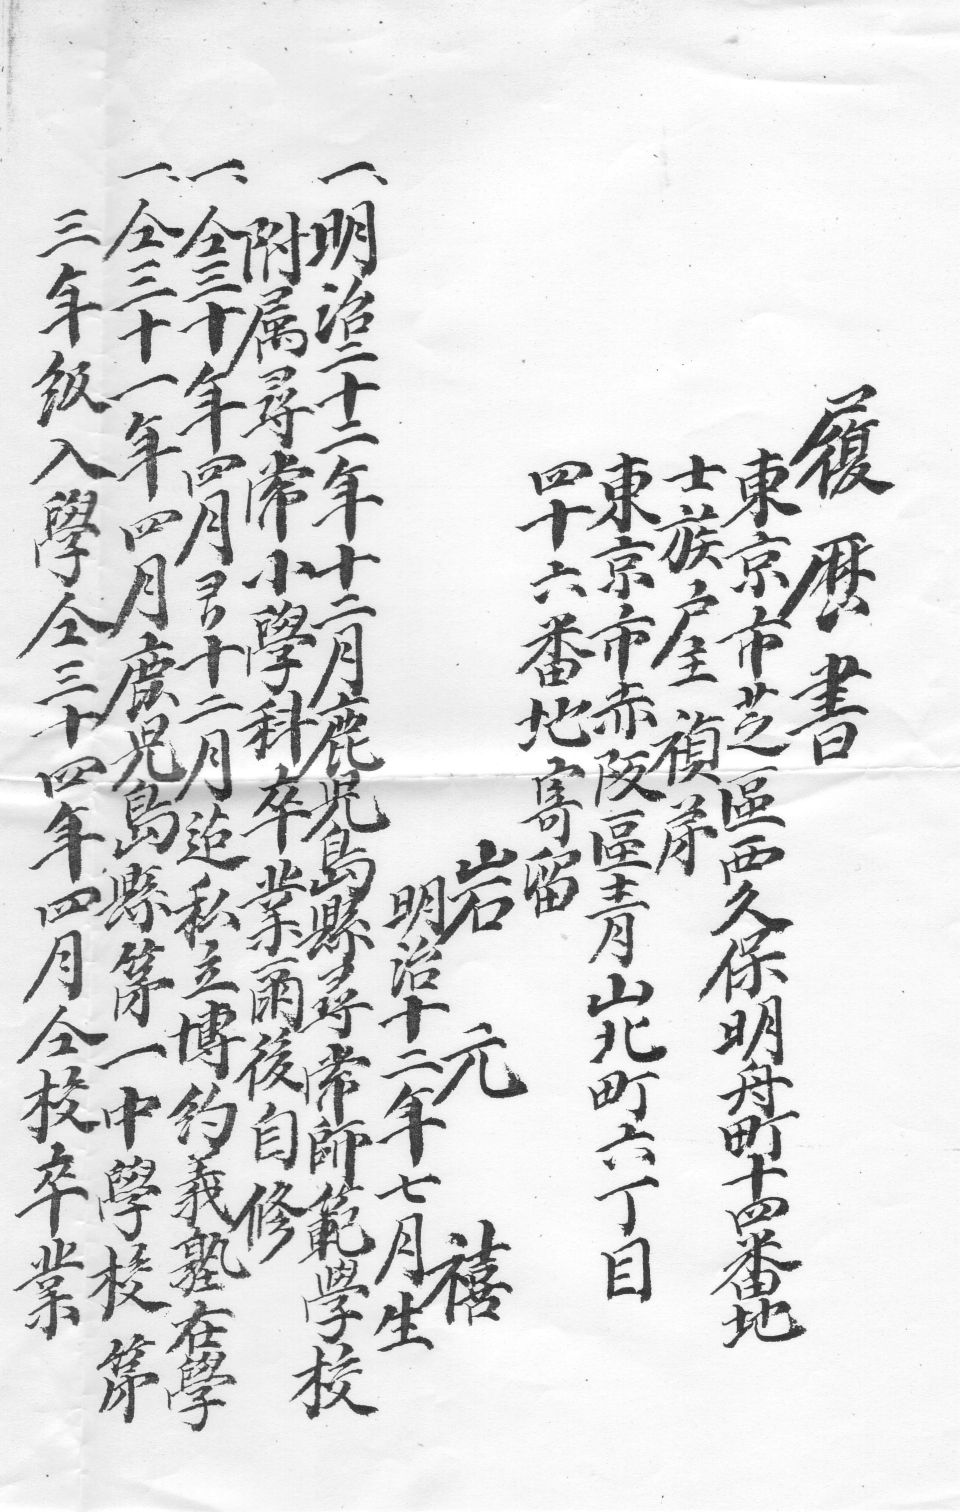 履歴書
東京市芝區西久保明舟町十四番地
士族戸主禎弟
東京市赤阪區青山北町六丁目
四十六番地寄留
岩元禧
明治十二年七月生
一、明治二十二年十二月鹿児島縣尋常師範學校
附属尋常小學科卒業爾後自修
一、仝三十年四月ヨリ十二月迄私立博約義塾在學
一、仝三十一年四月鹿児島縣第一中學校第
三年級入學仝三十四年四月仝校卒業